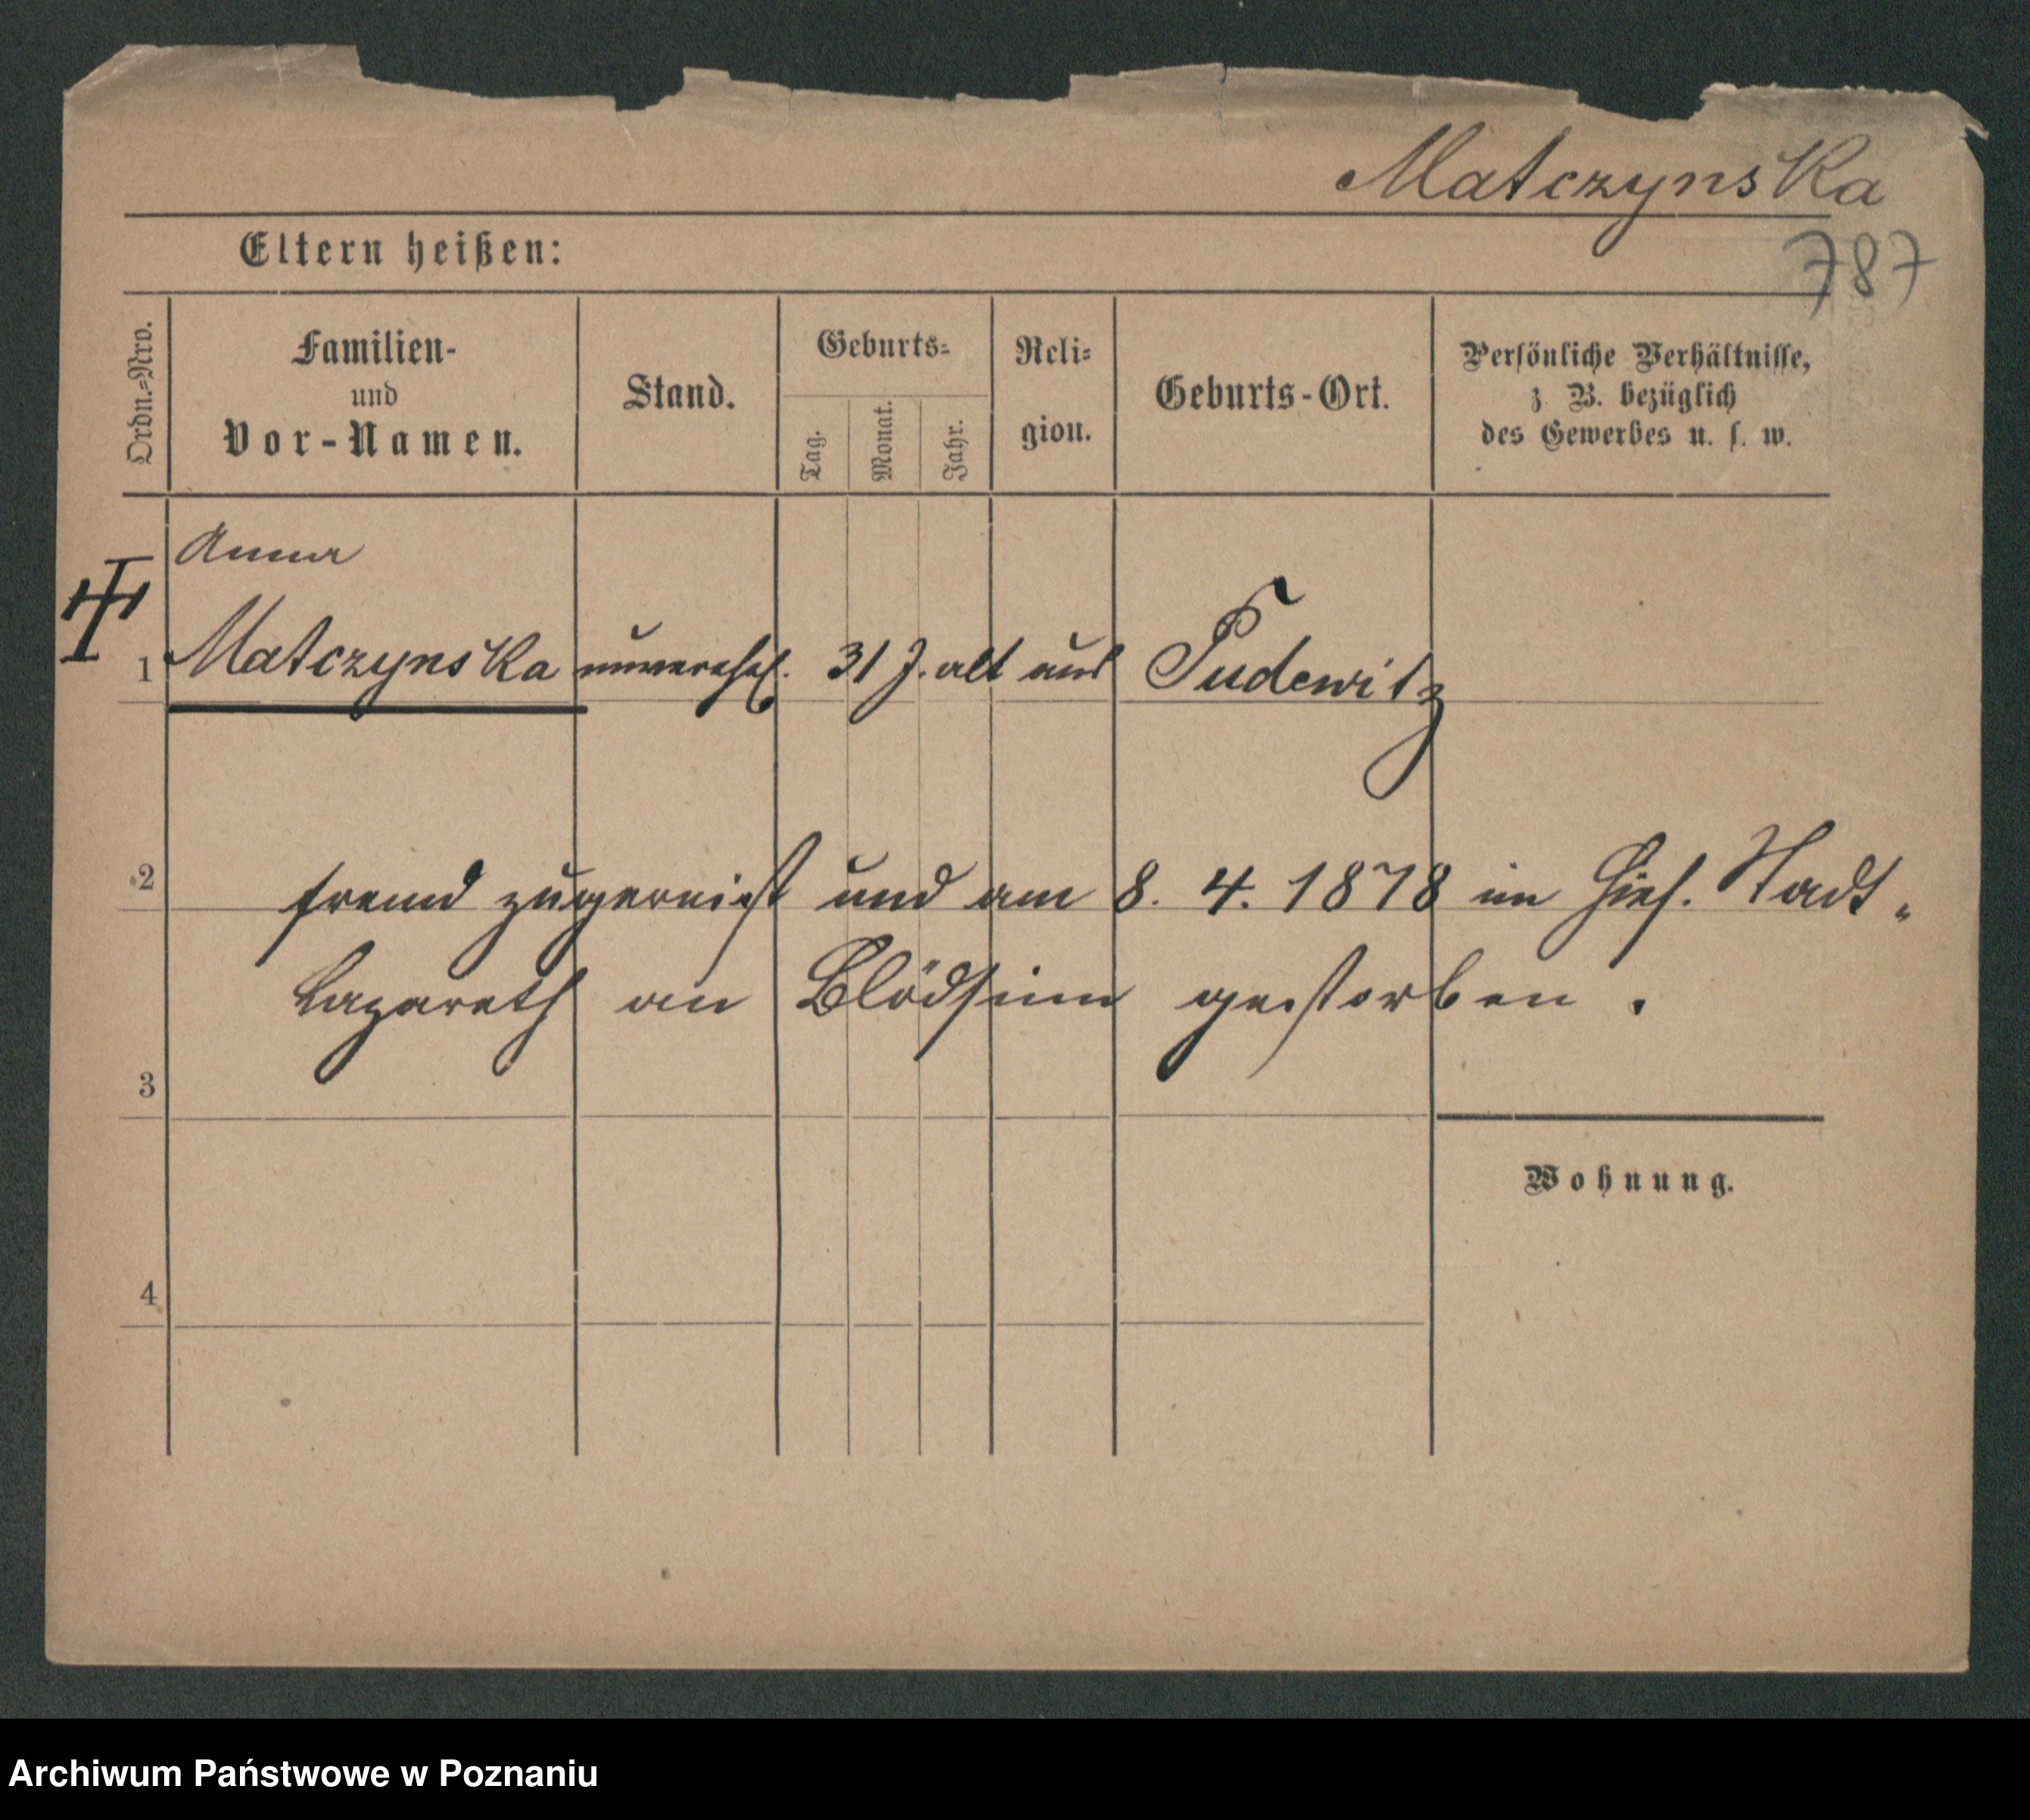 Matczynska
787
Eltern heißen:
Ordn.=Nro.
Familien-
und
Vor-Namen.
Stand.
Geburts=
Tag.
Monat.
Jahr.
Reli=
gion.
Geburts-Ort.
Persönliche Verhältnisse,
z. B. bezüglich
des Gewerbes u. s. w.
Anna
1 Matczynska unverehel. 31 J. alt aus Pudewitz
2
fremd zugereist und am 8. 4. 1878 im hies. Stadt-
Lazareth an Blödsinn gestorben.
3
Wohnung.
4
Archiwum Państwowe w Poznaniu